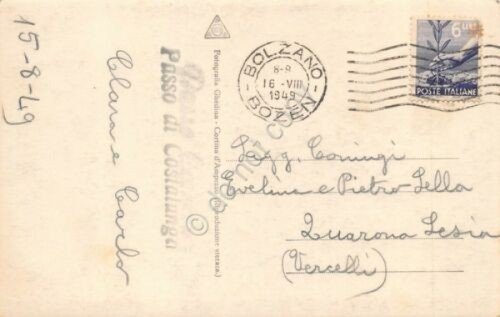 15-8-49
Clara e Carlo
Passo di Costalunga
Fotografia Ghedina - Cortina d'Ampezzo (Riproduzione vietata)
BOLZANO
8-8
16 - VIII
1949
BOZEN
6 LIRE
POSTE ITALIANE
Sagg. Coniugi
Evelina e Pietro Lella
Quarona Sesia
(Vercelli)